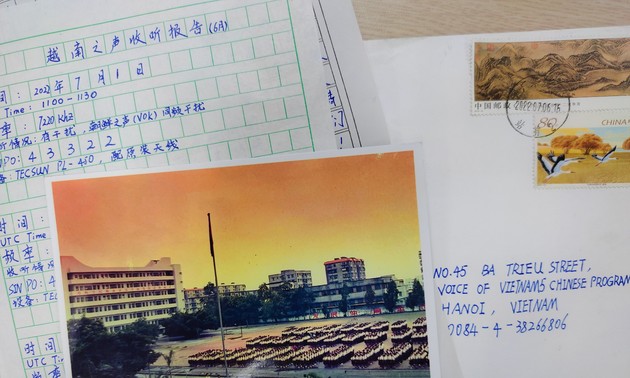 越南之声收听报告(6月)
间: 2022年7月1日
Time: 1100-1130
率: 7220 KHz
听情况: 有干扰, 朝鲜之声(VOK)同频干扰
PO: 4 3 3 2 2
备: TECSUN PL-450, 配原装天线
时间:
UTC Time
频率:
收听情况
SINPO: 4
设备: TEC
时间
UTC Tim
频率
中国邮政
CHINA
2022.07.06.16
NO.45 BA TRIEU STREET,
VOICE OF VIETNAMS CHINESE PROGRAM
HANOI, VIETNAM
0084-4-38266806